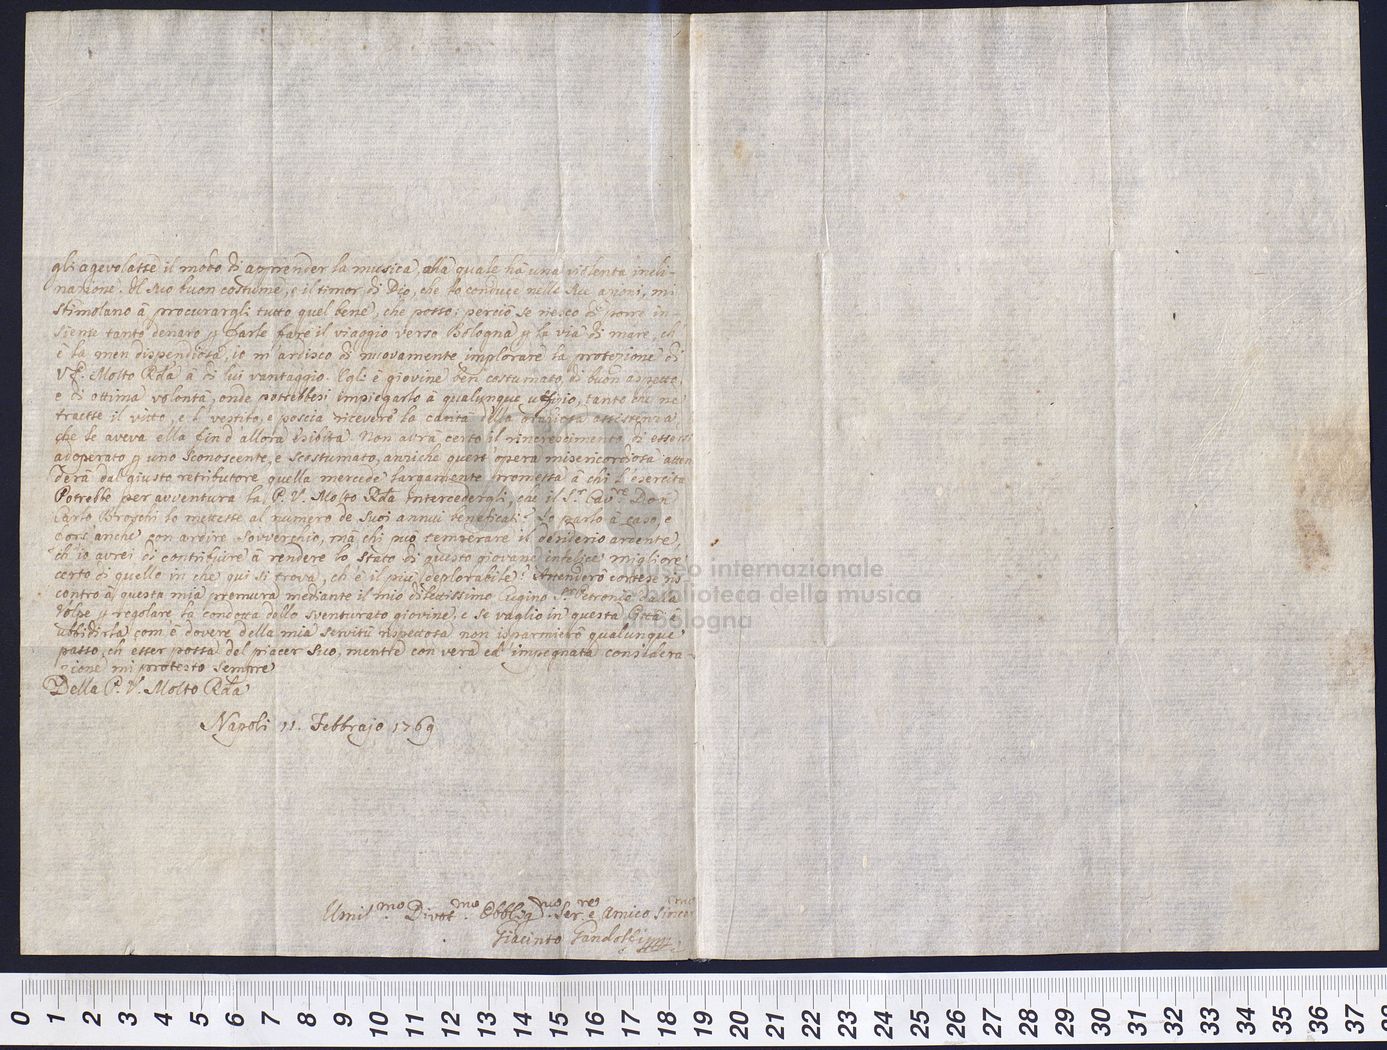 gli agevolasse il modo di apprender la musica, alla quale hà una violenta incli-
nazione. Il suo buon costume, e il timor di Dio, che lo conduce nelle sue azioni, mi
stimolano à procurargli tutto quel bene, che posso: perciò se riesco di porre in-
sieme tanto denaro p farle fare il viaggio verso Bologna p la via di mare, ch'
è la men dispendiosa, io m'ardisco di nuovamente implorare la protezione di
V. P. Molto Rda à di lui vantaggio. Egli è giovine ben costumato, di buon aspetto,
e di ottima volontà, onde potrebbesi impiegarlo à qualunque uffizio, tanto che ne
traesse il vitto, e l' vestito, e poscia ricevere la carità della graziosa assistenza,
che le aveva ella fin d'allora esibita. Non avrà certo il rincrescimento di essersi
adoperato p uno sconoscente, e scostumato, anziche quest'opera misericordiosa atten
derà dal giusto retributore quella mercede largamente promessa à chi l'esercita.
Potrebbe per avventura la P. V. Molto Rda intercedergli, che il Sr. Cavre. Don
Carlo Broschi lo mettesse al numero de suoi annui beneficati? Io parlo à caso, e
fors'anche con ardire sovverchio, mà chi può temperare il desiderio ardente,
ch'io avrei di contribuire à rendere lo stato di questo giovane infelice migliore
certo di quello in che qui si trova, ch'è il più deplorabile? Attenderò cortese ris
contro à questa mia premura mediante il mio dilettissimo Cugino Sr. Petronio dalla
Volpe p regolare la condotta dello sventurato giovine, e se vaglio in questa Città à
ubbidirla com'è dovere della mia servitù rispettosa non isparmierò qualunque
passo, ch'esser possa del piacer suo, mentre con vera ed' impegnata considera-
zione mi protesto sempre
Della P. V. Molto Rda
Napoli 11. Febbrajo 1769
Umilmo. Divotmo. Obblgmo. Serre e Amico Sincermo
Giacinto Gandolfi
museo internazionale
e biblioteca della musica
di Bologna
0 1 2 3 4 5 6 7 8 9 10 11 12 13 14 15 16 17 18 19 20 21 22 23 24 25 26 27 28 29 30 31 32 33 34 35 36 37 38